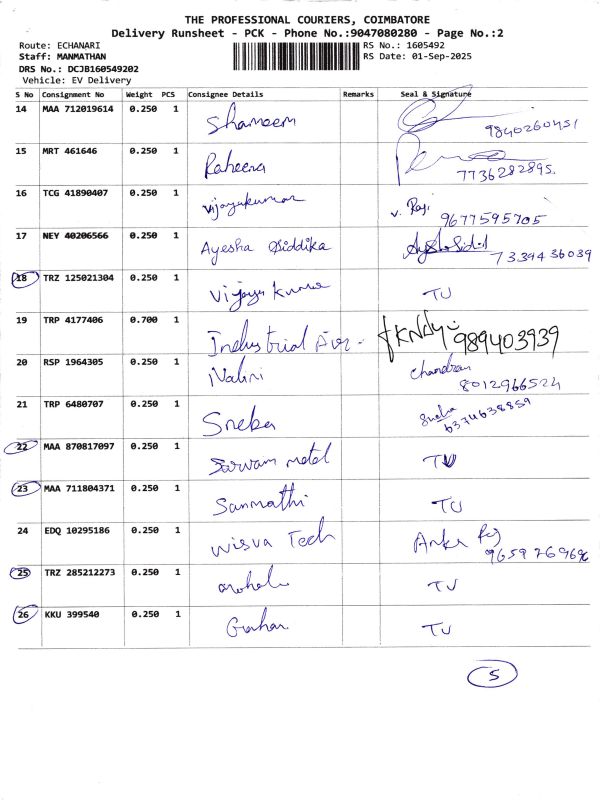 THE PROFESSIONAL COURIERS, COIMBATORE
Delivery Runsheet - PCK - Phone No.:9047080280 - Page No.:2
Route: ECHANARI RS No.: 1605492
Staff: MANMATHAN RS Date: 01-Sep-2025
DRS No.: DCJB160549202
Vehicle: EV Delivery
S No Consignment No Weight PCS Consignee Details Remarks Seal & Signature
14 MAA 712019614 0.250 1 Shameem 9840260451
15 MRT 461646 0.250 1 Raheena 7736282895.
16 TCG 41890407 0.250 1 Vijayakumar V. Raji 9677595705
17 NEY 40206566 0.250 1 Ayesha Siddika 7339436039
18 TRZ 125021304 0.250 1 Vijaya Kumar TU
19 TRP 4177406 0.700 1 Industrial 989403939
20 RSP 1964305 0.250 1 Nalini Chandran 8012966524
21 TRP 6480707 0.250 1 Sneha Sneha 6374638859
22 MAA 870817097 0.250 1 Sarvam metal TU
23 MAA 711804371 0.250 1 Sanmathi TU
24 EDQ 10295186 0.250 1 Wisva Tech
25 TRZ 285212273 0.250 1 TU
26 KKU 399540 0.250 1 TU
5